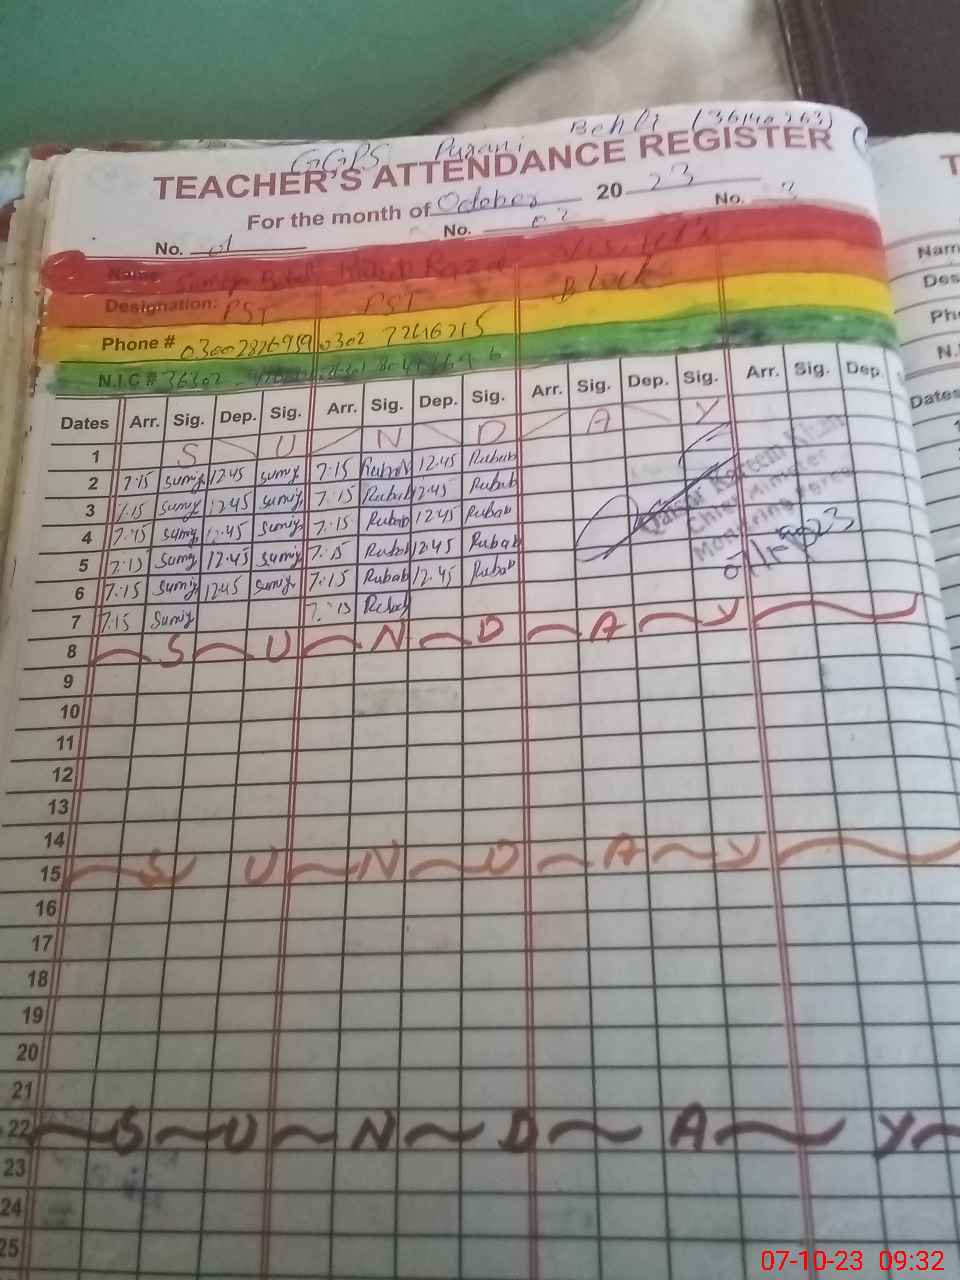 GGPS Purani Behli (36140263)
TEACHER'S ATTENDANCE REGISTER
For the month of October 20 23
No. 01 No. 02 No. 3
Name
Designation: PST PST Block
Phone # 0302 7246215
N.I.C # 36302
Dates Arr. Sig. Dep. Sig. Arr. Sig. Dep. Sig. Arr. Sig. Dep. Sig. Arr. Sig. Dep.
1 S U N D A Y
2 7:15 sumy 12:45 sumy 7:15 Rubab 12:45 Rubab
3 7:15 sumy 12:45 sumy 7:15 Rubab 12:45 Rubab
4 7:15 sumy 12:45 sumy 7:15 Rubab 12:45 Rubab
5 7:15 sumy 12:45 sumy 7:15 Rubab 12:45 Rubab
6 7:15 sumy 12:45 sumy 7:15 Rubab 12:45 Rubab
7 7:15 sumy 7:15 Rubab
Chief Minister
Monitoring Force
8 S U N D A Y
9
10
11
12
13
14
15 S U N D A Y
16
17
18
19
20
21
22 S U N D A Y
23
24
25
T
Nam
Des
Pho
N.I
Dates
07-10-23 09:32